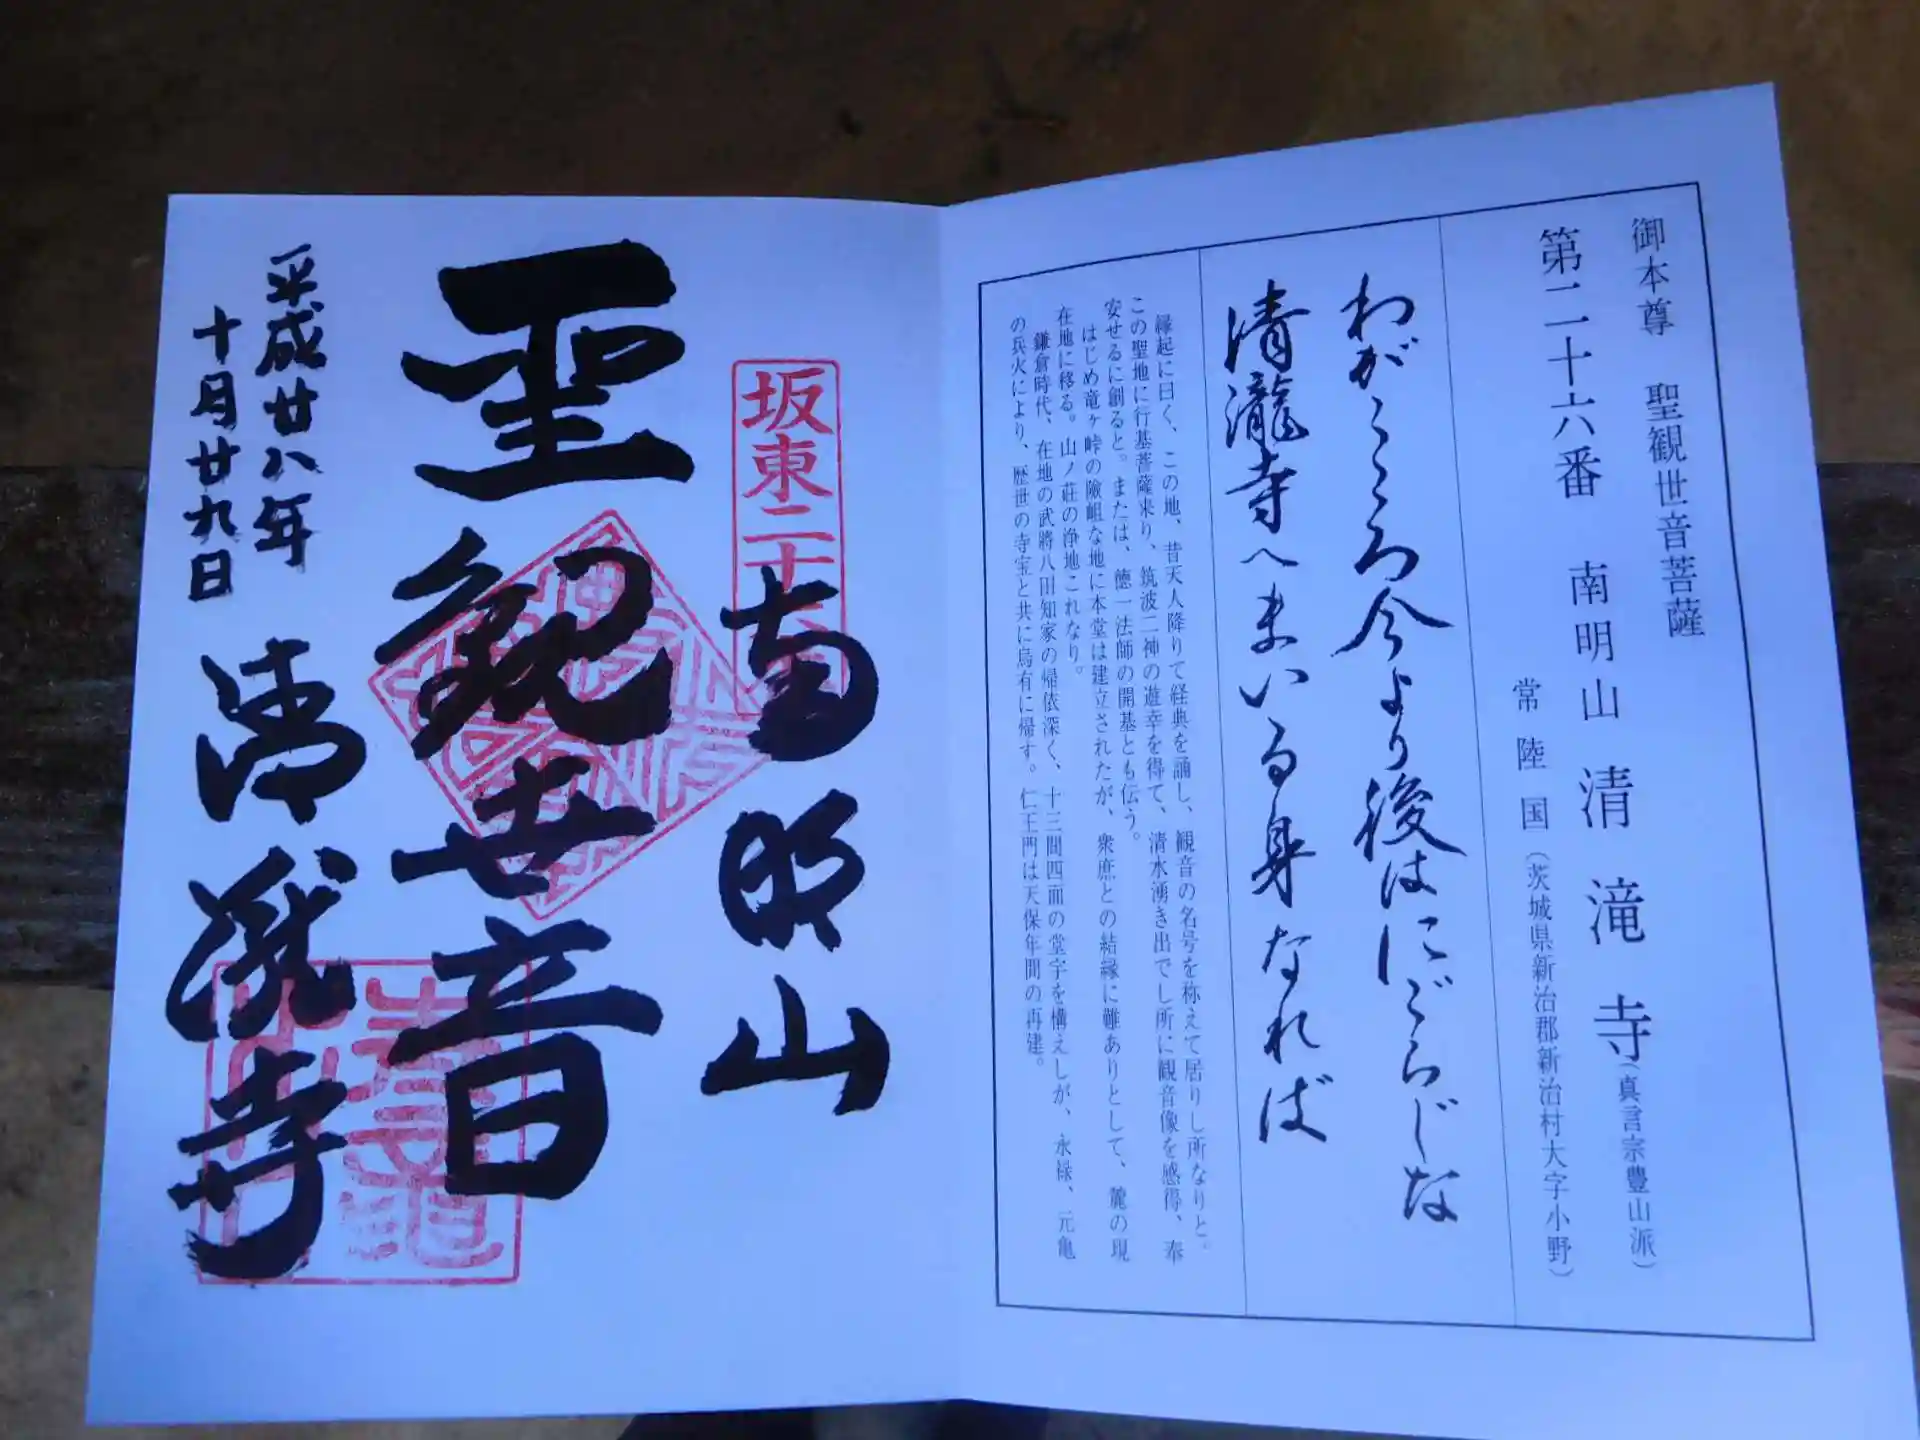 御本尊 聖観世音菩薩
第二十六番 南明山 清滝寺(真言宗豊山派)
常陸国(茨城県新治郡新治村大字小野)
わがこころ今より後はにごらじな
清瀧寺へまいる身なれば
縁起に曰く、この地、昔天人降りて経典を誦し、観音の名号を称えて居りし所なりと。
この聖地に行基菩薩来り、筑波二神の遊幸を得て、清水湧き出でし所に観音像を感得、奉
安せるに創ると。または、徳一法師の開基とも伝う。
はじめ竜ヶ峠の険岨な地に本堂は建立されたが、衆庶との結縁に難ありとして、麓の現
在地に移る。山ノ荘の浄地これなり。
鎌倉時代、在地の武将八田知家の帰依深く、十三間四面の堂宇を構えしが、永禄、元亀
の兵火により、歴世の寺宝と共に烏有に帰す。仁王門は天保年間の再建。
坂東二十
南明山
聖観世音
平成廿八年
十月廿九日
清瀧寺